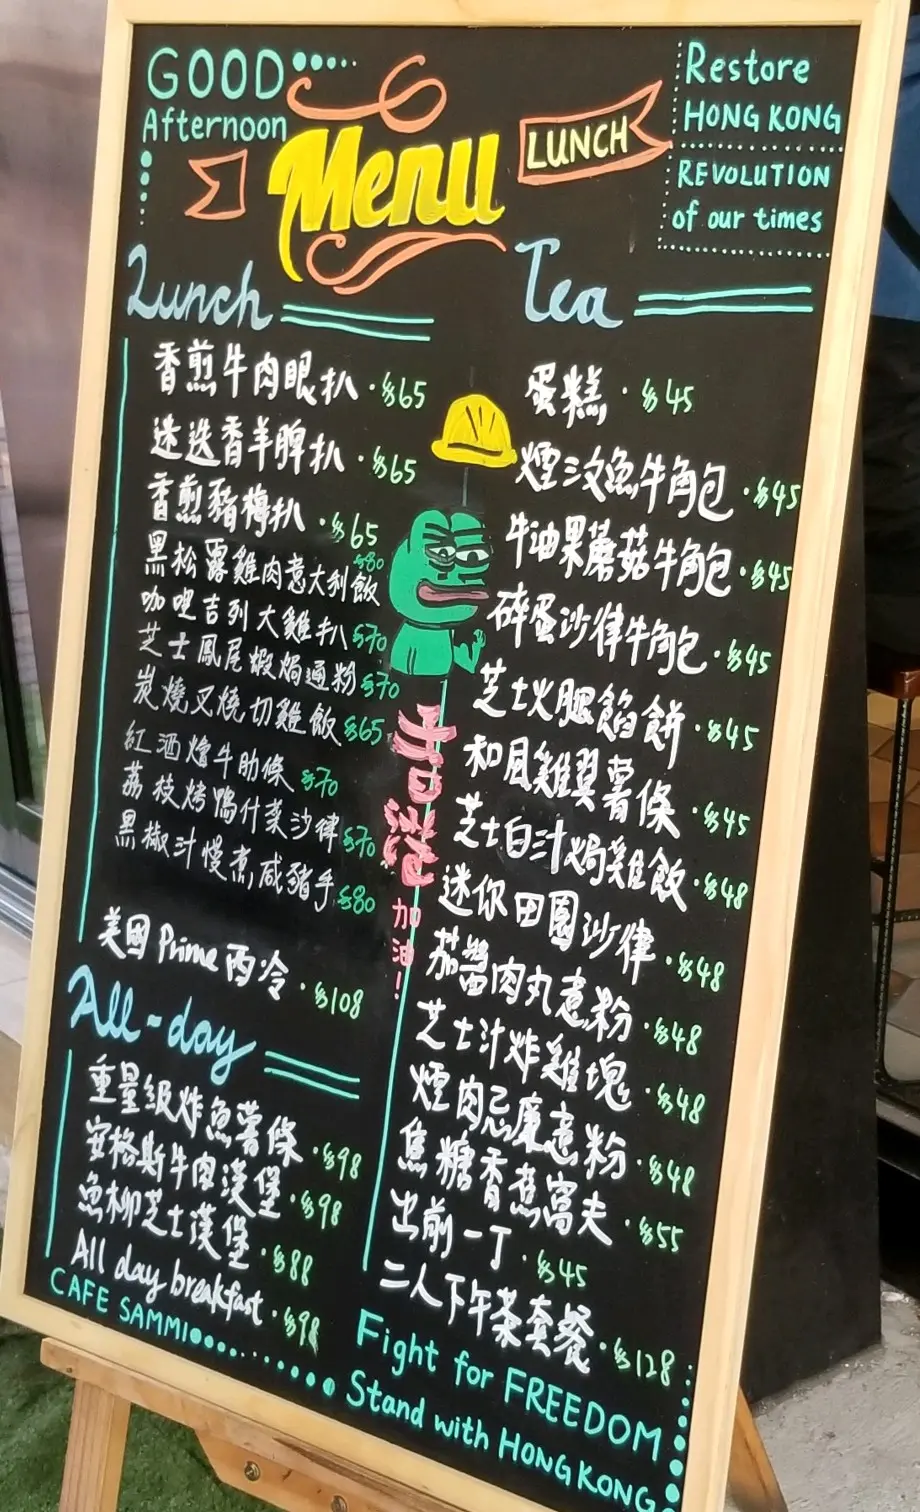 GOOD
Afternoon
Menu
LUNCH
Restore
HONG KONG
REVOLUTION
of our times
Lunch
香煎牛肉眼扒 · $65
迷迭香羊脾扒 · $65
香煎豬梅扒 · $65
黑松露雞肉意大利飯 $80
咖喱吉列大雞扒 $70
芝士鳳尾蝦焗通粉 $70
炭燒叉燒切雞飯 $65
紅酒燴牛肋條 $70
荔枝烤鴨什菜沙律 $70
黑椒汁慢煮咸豬手 $80
美國 Prime 西冷 · $108
All-day
重量級炸魚薯條 · $98
安格斯牛肉漢堡 · $98
魚柳芝士漢堡 · $88
All day breakfast · $98
CAFE SAMMI
香港
加油!
Tea
蛋糕 · $45
煙三文魚牛角包 · $45
牛油果蘑菇牛角包 · $45
碎蛋沙律牛角包 · $45
芝士火腿餡餅 · $45
和風雞翼薯條 · $45
芝士白汁焗雞飯 · $48
迷你田園沙律 · $48
茄醬肉丸意粉 · $48
芝士汁炸雞塊 · $48
煙肉忌廉意粉 · $48
焦糖香蕉窩夫 · $55
出前一丁 · $45
二人下午茶套餐 · $128
Fight for FREEDOM
Stand with HONG KONG